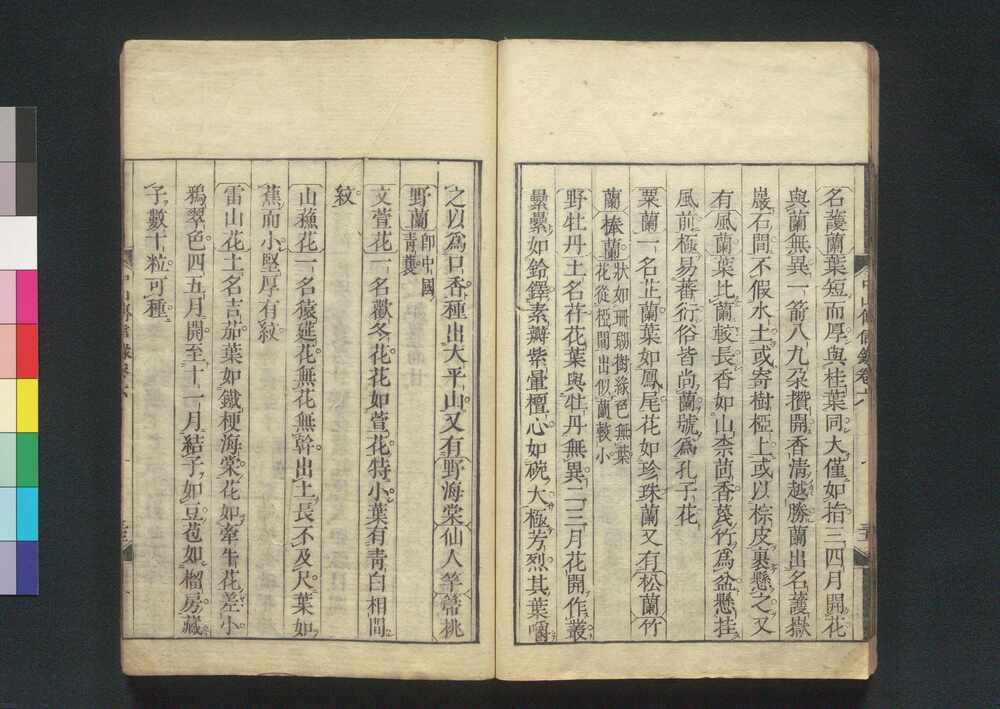 名護蘭葉短而厚與桂葉同大僅如指三四月開花
與蘭無異一箭八九朶攢開香清越勝蘭出名護嶽
巖石間不假水土或寄樹椏上或以椶皮裹懸之又
有風蘭葉比蘭較長香如山柰茴香篾竹爲盆懸挂
風前極易蕃衍俗皆尚蘭號爲孔子花
粟蘭一名芷蘭葉如鳳尾花如珍珠蘭又有松蘭竹
蘭棒蘭狀如珊瑚樹綠色無葉
花從椏間出似蘭較小
野牡丹土名荇花葉與牡丹無異二三月花開作叢
纍纍如鈴鐸素瓣紫暈檀心如碗大極芳烈其葉嚼
之以爲口香種出大平山又有野海棠仙人竿箒桃
野蘭卽中國
青蘘
文萱花一名歡冬花花如萱花特小葉有靑白相間
紋
山蘓花一名猿莚花無花無幹出土長不及尺葉如
蕉而小堅厚有紋
雷山花土名吉茄葉如鐵梗海棠花如牽牛花差小
鴉翠色四五月開至十一月結子如豆苞如榴房藏
子數十粒可種
中山傳信錄卷六